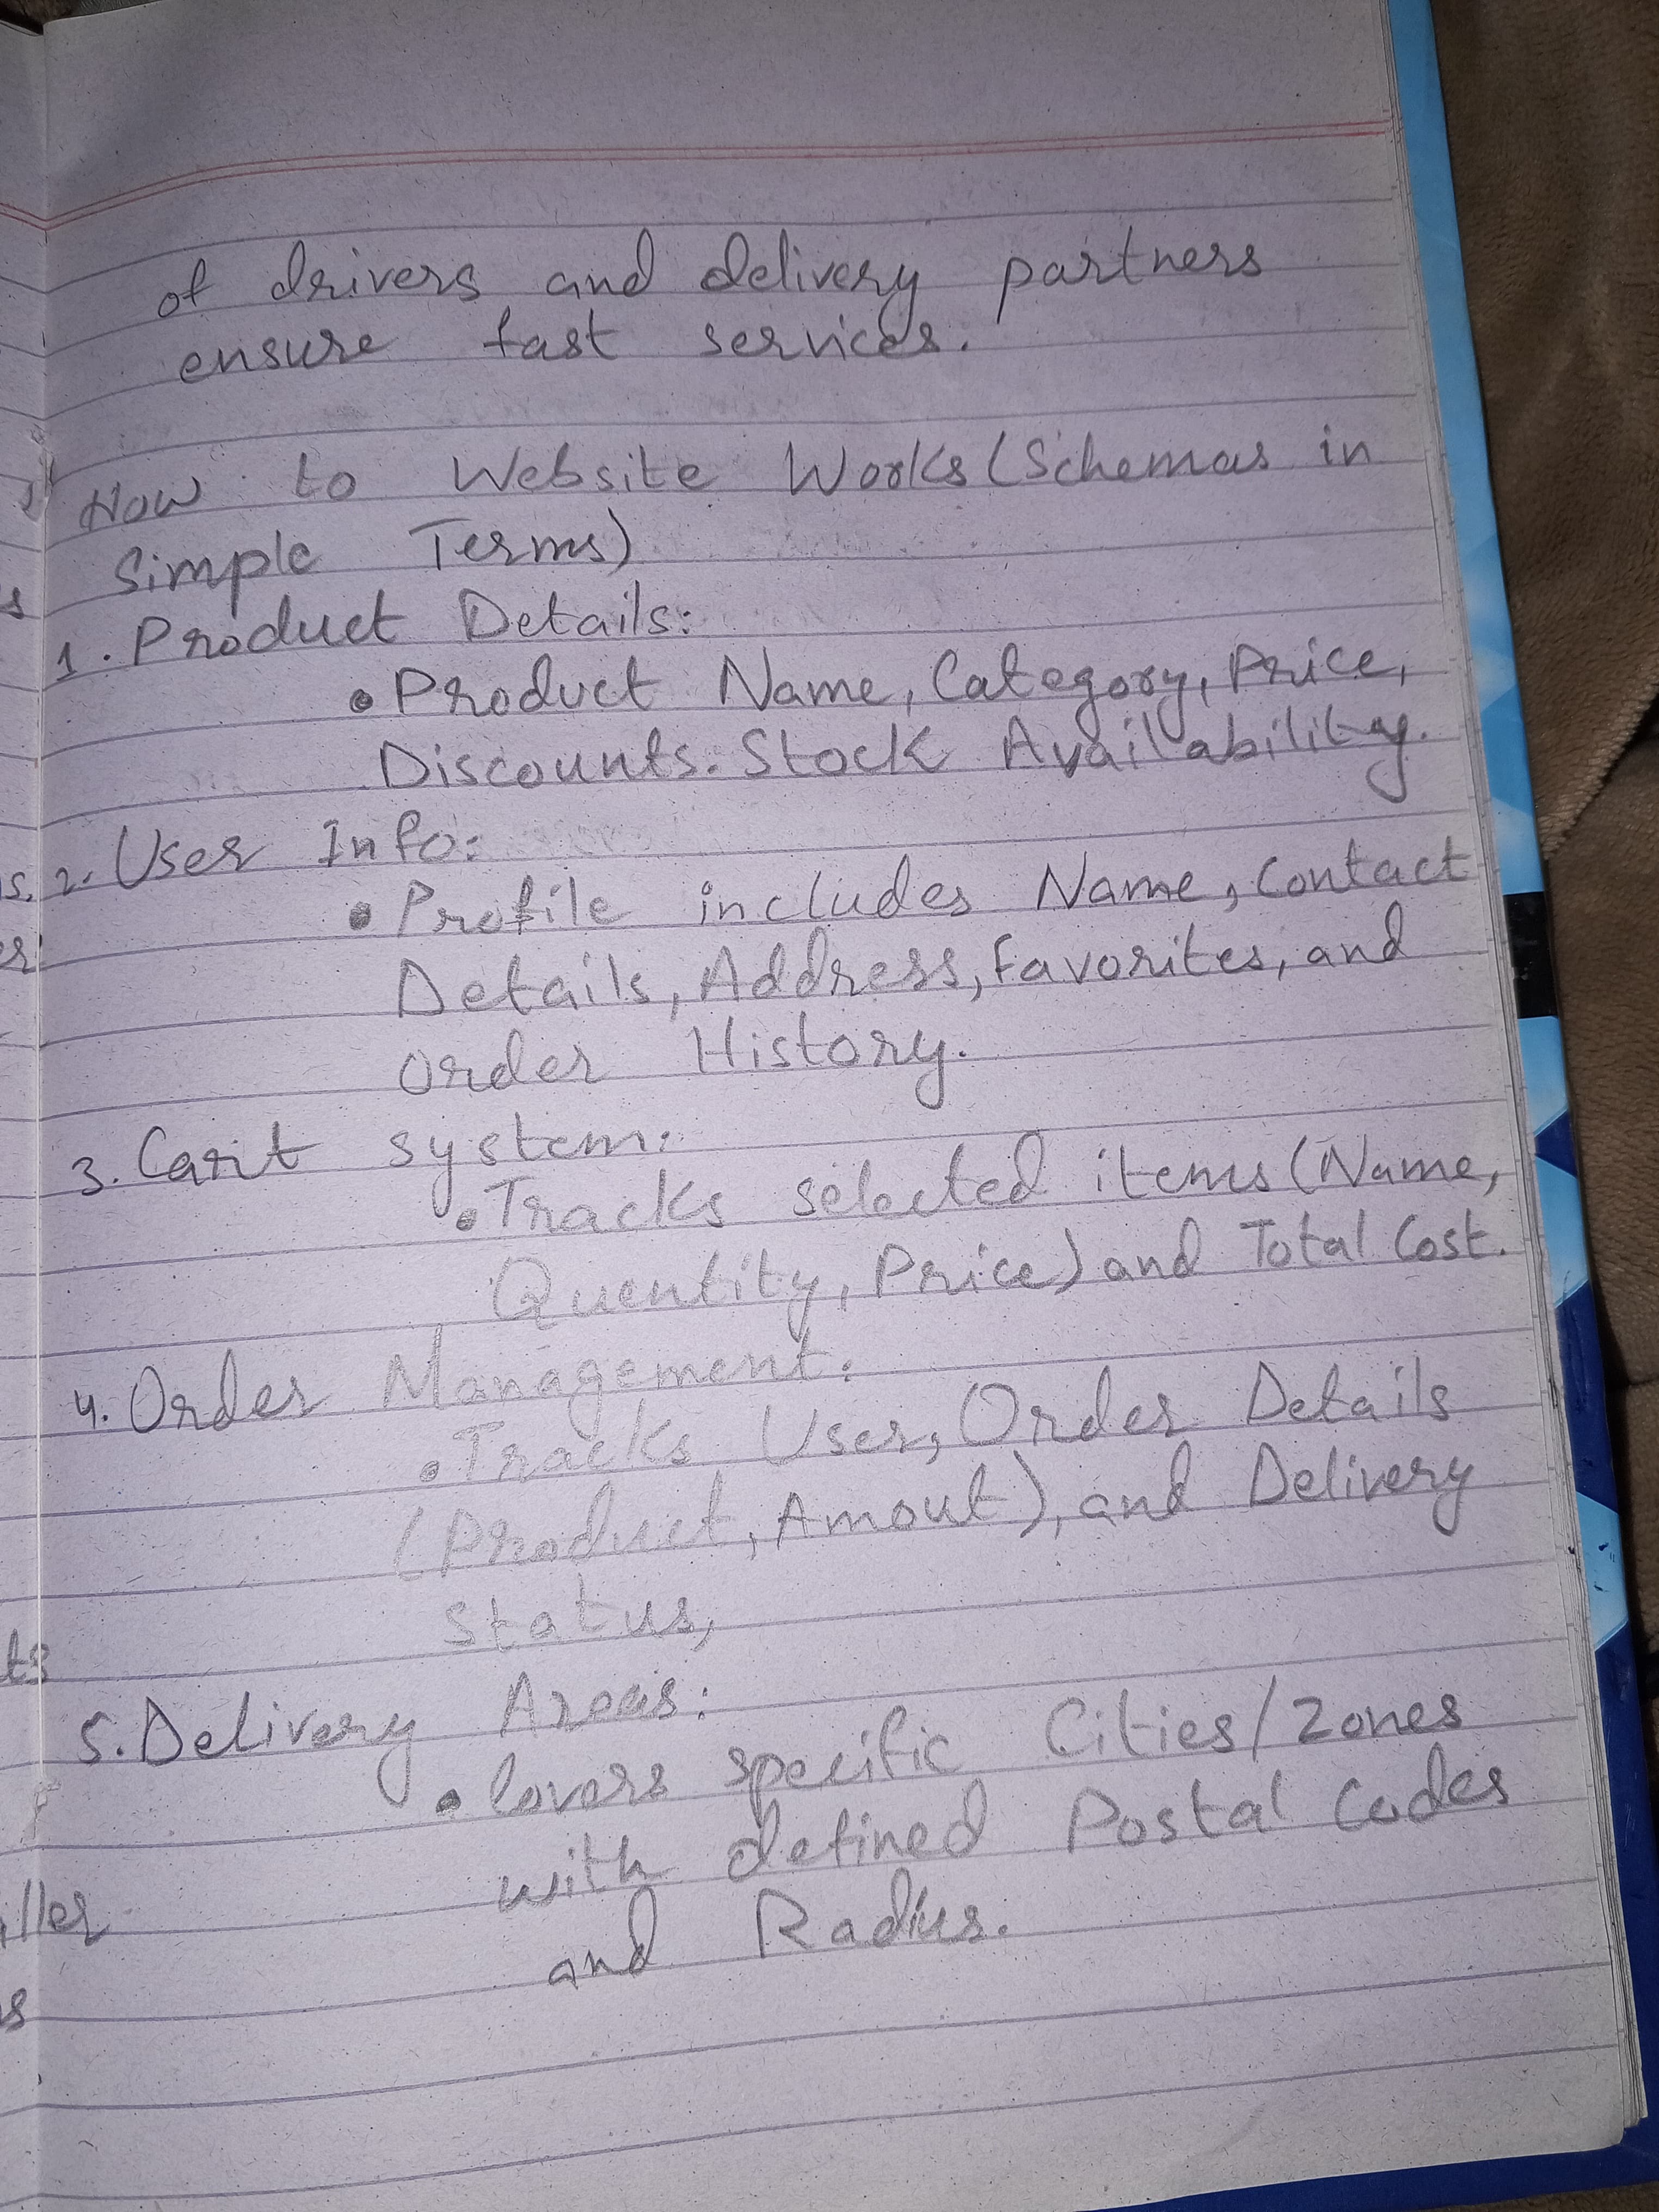 of drivers and delivery partners
ensure fast services.
How to Website Works (Schemas in
Simple Terms)
1. Product Details:
• Product Name, Category, Price,
Discounts. Stock Availability.
2. User Info:
• Profile includes Name, Contact
Details, Address, Favorites, and
Order History.
3. Cart system:
• Tracks selected items (Name,
Quentity, Price) and Total Cost.
4. Order Management:
• Tracks User, Order Details
(Product, Amout), and Delivery
Status,
5. Delivery Areas:
• Covers specific Cities/Zones
with defined Postal Codes
and Radius.